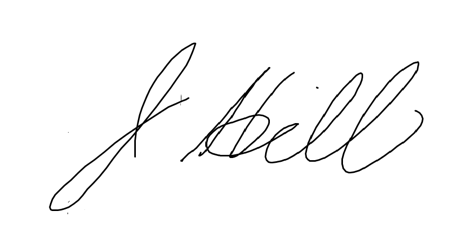 J Hill